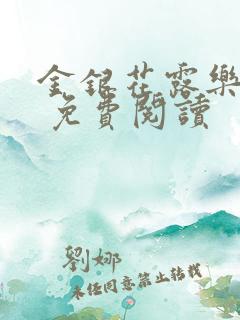 金銀花露樂
免費閱讀
劉娜
未經同意禁止轉載